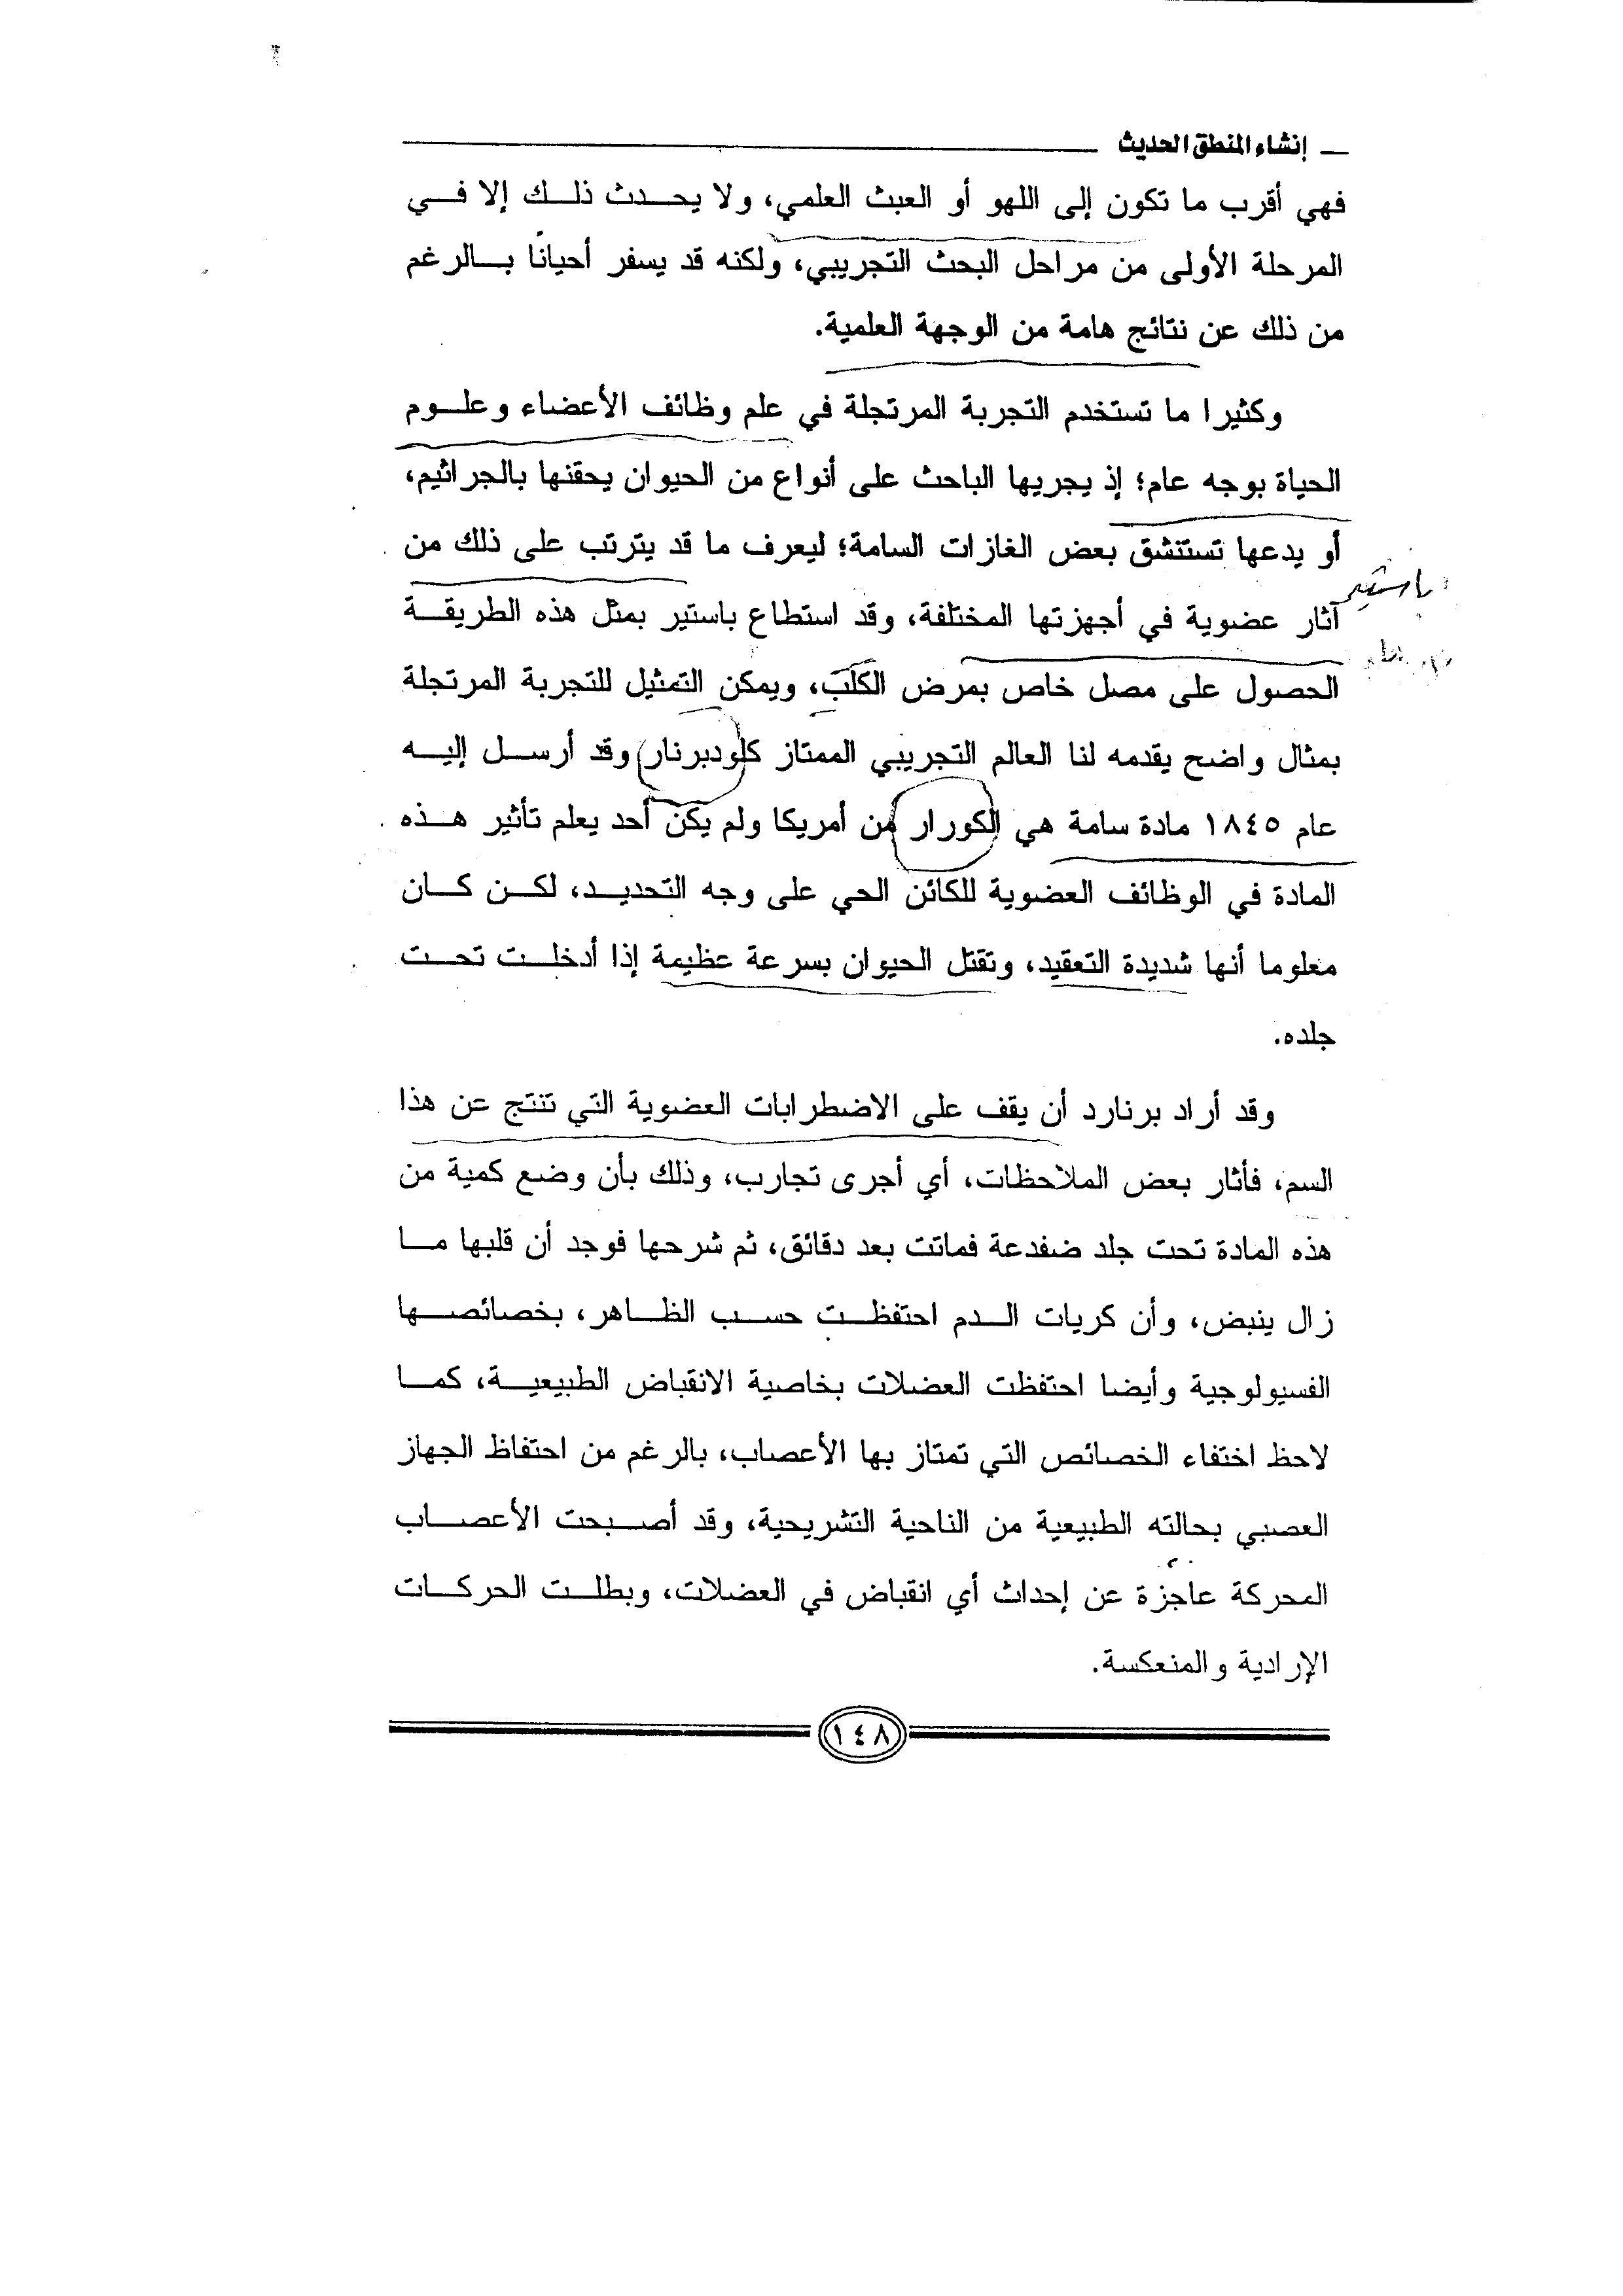 إنشاء المنطق الحديث
فهي أقرب ما تكون إلى اللهو أو العبث العلمي، ولا يحدث ذلك إلا في
المرحلة الأولى من مراحل البحث التجريبي، ولكنه قد يسفر أحيانًا بالرغم
من ذلك عن نتائج هامة من الوجهة العلمية.
وكثيرا ما تستخدم التجربة المرتجلة في علم وظائف الأعضاء وعلوم
الحياة بوجه عام؛ إذ يجريها الباحث على أنواع من الحيوان يحقنها بالجراثيم،
أو يدعها تستنشق بعض الغازات السامة؛ ليعرف ما قد يترتب على ذلك من
باستير
آثار عضوية في أجهزتها المختلفة، وقد استطاع باستير بمثل هذه الطريقة
الحصول على مصل خاص بمرض الكلَب، ويمكن التمثيل للتجربة المرتجلة
بمثال واضح يقدمه لنا العالم التجريبي الممتاز كلودبرنار) وقد أرسل إليه
عام ١٨٤٥ مادة سامة هي الكورار من أمريكا ولم يكن أحد يعلم تأثير هذه
المادة في الوظائف العضوية للكائن الحي على وجه التحديد، لكن كان
معلوما أنها شديدة التعقيد، وتقتل الحيوان بسرعة عظيمة إذا أدخلت تحت
جلده.
وقد أراد برنارد أن يقف على الاضطرابات العضوية التي تنتج عن هذا
السم، فأثار بعض الملاحظات، أي أجرى تجارب، وذلك بأن وضع كمية من
هذه المادة تحت جلد ضفدعة فماتت بعد دقائق، ثم شرحها فوجد أن قلبها ما
زال ينبض، وأن كريات الدم احتفظت حسب الظاهر، بخصائصها
الفسيولوجية وأيضا احتفظت العضلات بخاصية الانقباض الطبيعية، كما
لاحظ اختفاء الخصائص التي تمتاز بها الأعصاب، بالرغم من احتفاظ الجهاز
العصبي بحالته الطبيعية من الناحية التشريحية، وقد أصبحت الأعصاب
المحركة عاجزة عن إحداث أي انقباض في العضلات، وبطلت الحركات
الإرادية والمنعكسة.
١٤٨